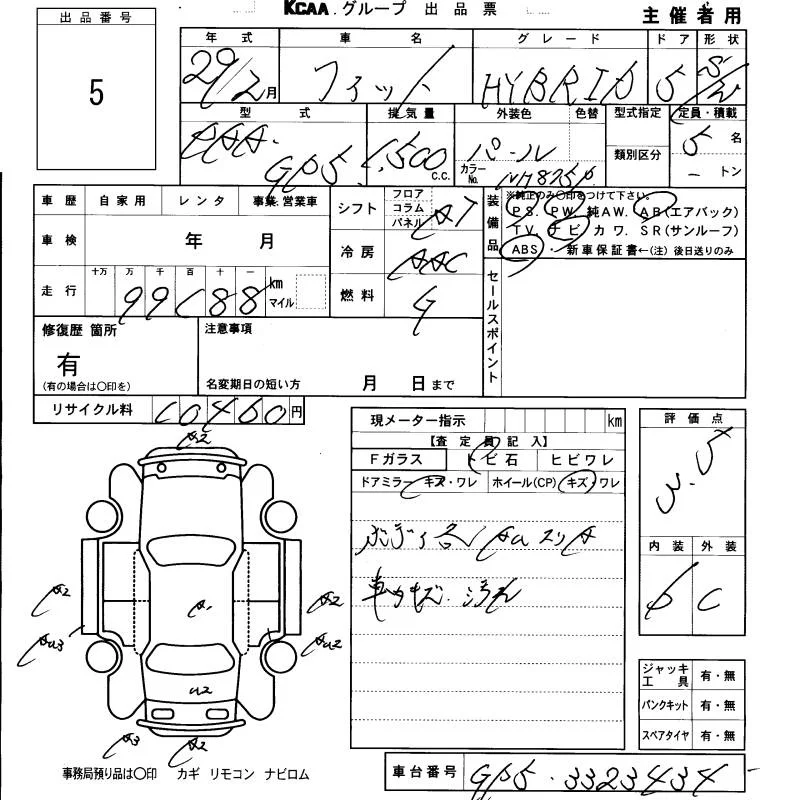 出品番号
5
KCAA.グループ 出品票
主催者用
年式 車名 グレード ドア 形状
29/2月 フィット HYBRID 5 S/W
型式 排気量 外装色 色替 型式指定 定員・積載
DAA-GP5 1,500 c.c. パール カラーNo. NH875P 類別区分 5名
－トン
車歴 自家用 レンタ 事業・営業車
シフト フロア コラム パネル AT
装備品
※純正のみ〇印をつけて下さい。
PS. PW. 純AW. AB(エアバック)
TV. ナビ カワ. SR(サンルーフ)
ABS・新車保証書←(注)後日送りのみ
車検 年 月
冷房 AAC
走行 十万 万 千 百 十 一
99688 km マイル
燃料 G
セールスポイント
修復歴 箇所
有
(有の場合は〇印を)
注意事項
名変期日の短い方 月 日まで
リサイクル料 10460円
現メーター指示 km
【査定員記入】
Fガラス トビ石 ヒビワレ
ドアミラー キズ・ワレ ホイール(CP) キズ・ワレ
ボディ各 AU スリA
車内キズ・汚れ
評価点
3.5
内装 外装
C
ジャッキ工具 有・無
パンクキット 有・無
スペアタイヤ 有・無
A2
A2
AU3
A1
A2
AU2
U2
A3
A2
事務局預り品は〇印 カギ リモコン ナビロム
車台番号 GP5-3323434